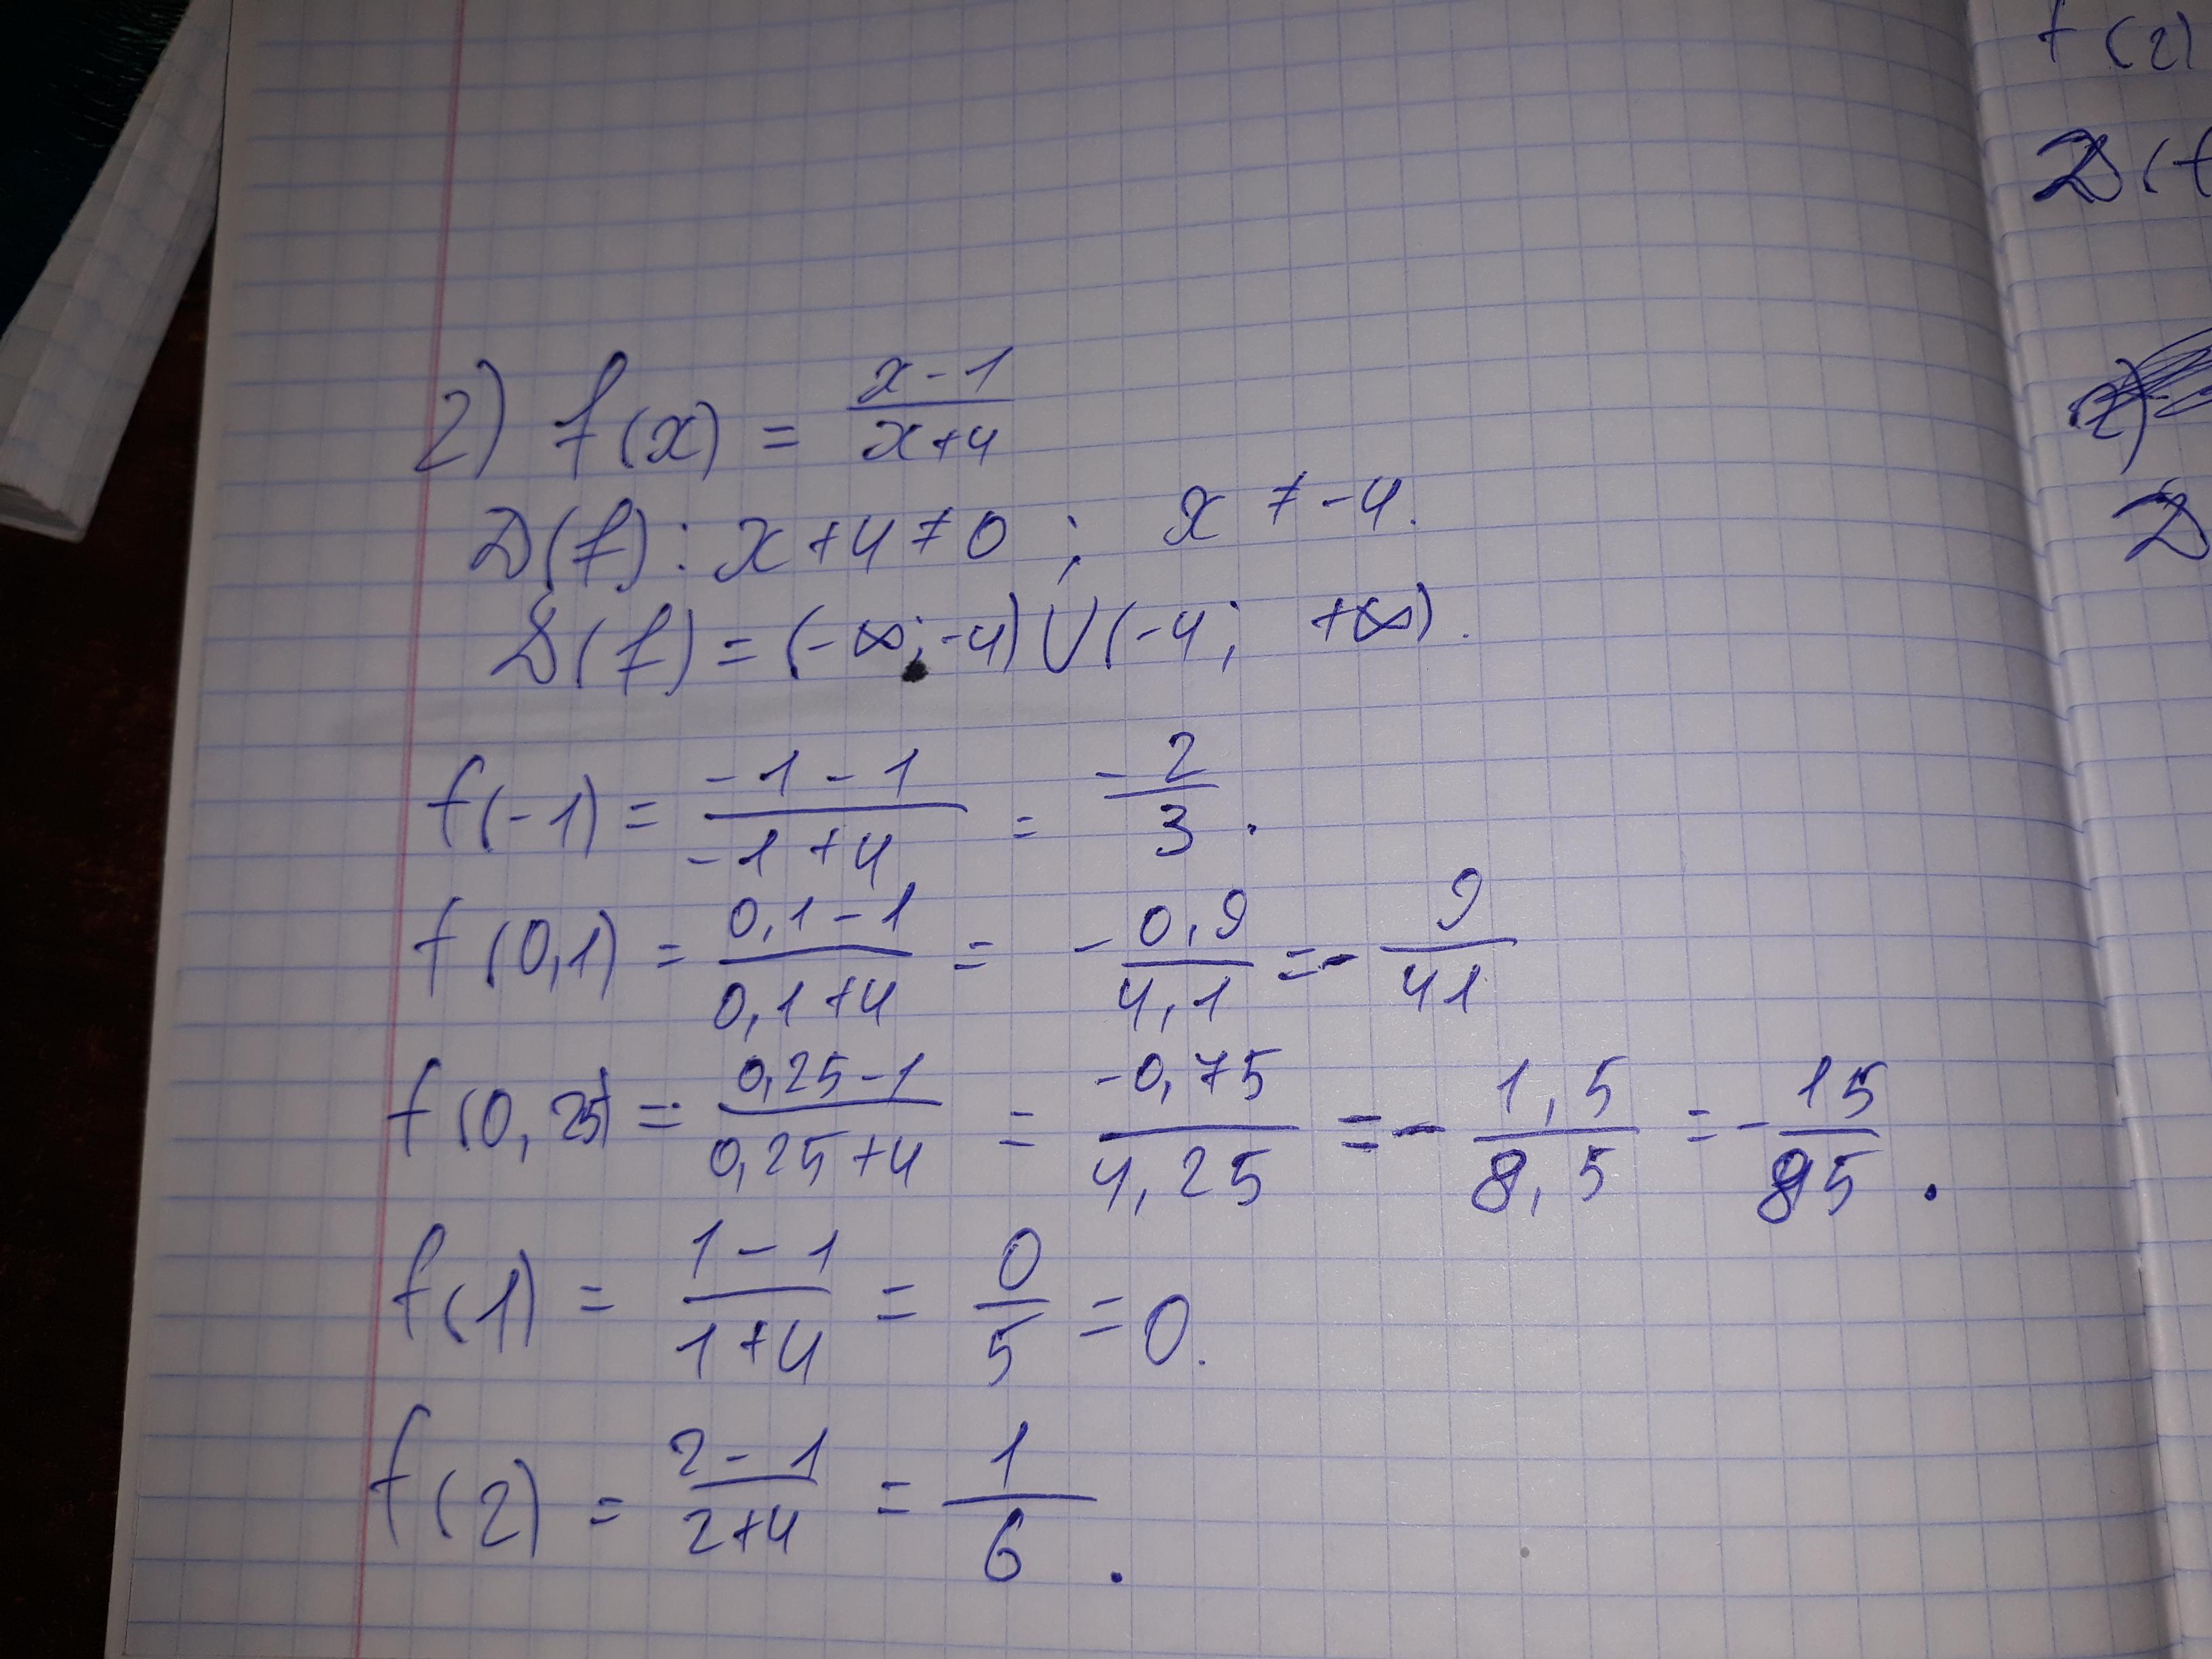 2) f(x) = (x-1)/(x+4)
D(f): x+4≠0 ; x ≠ -4.
D(f) = (-∞; -4) ∪ (-4; +∞).
f(-1) = (-1-1)/(-1+4) = -2/3.
f(0,1) = (0,1-1)/(0,1+4) = -0,9/4,1 = -9/41
f(0,25) = (0,25-1)/(0,25+4) = -0,75/4,25 = -1,5/8,5 = -15/85.
f(1) = (1-1)/(1+4) = 0/5 = 0.
f(2) = (2-1)/(2+4) = 1/6.
f(2)
D(f
2)
D